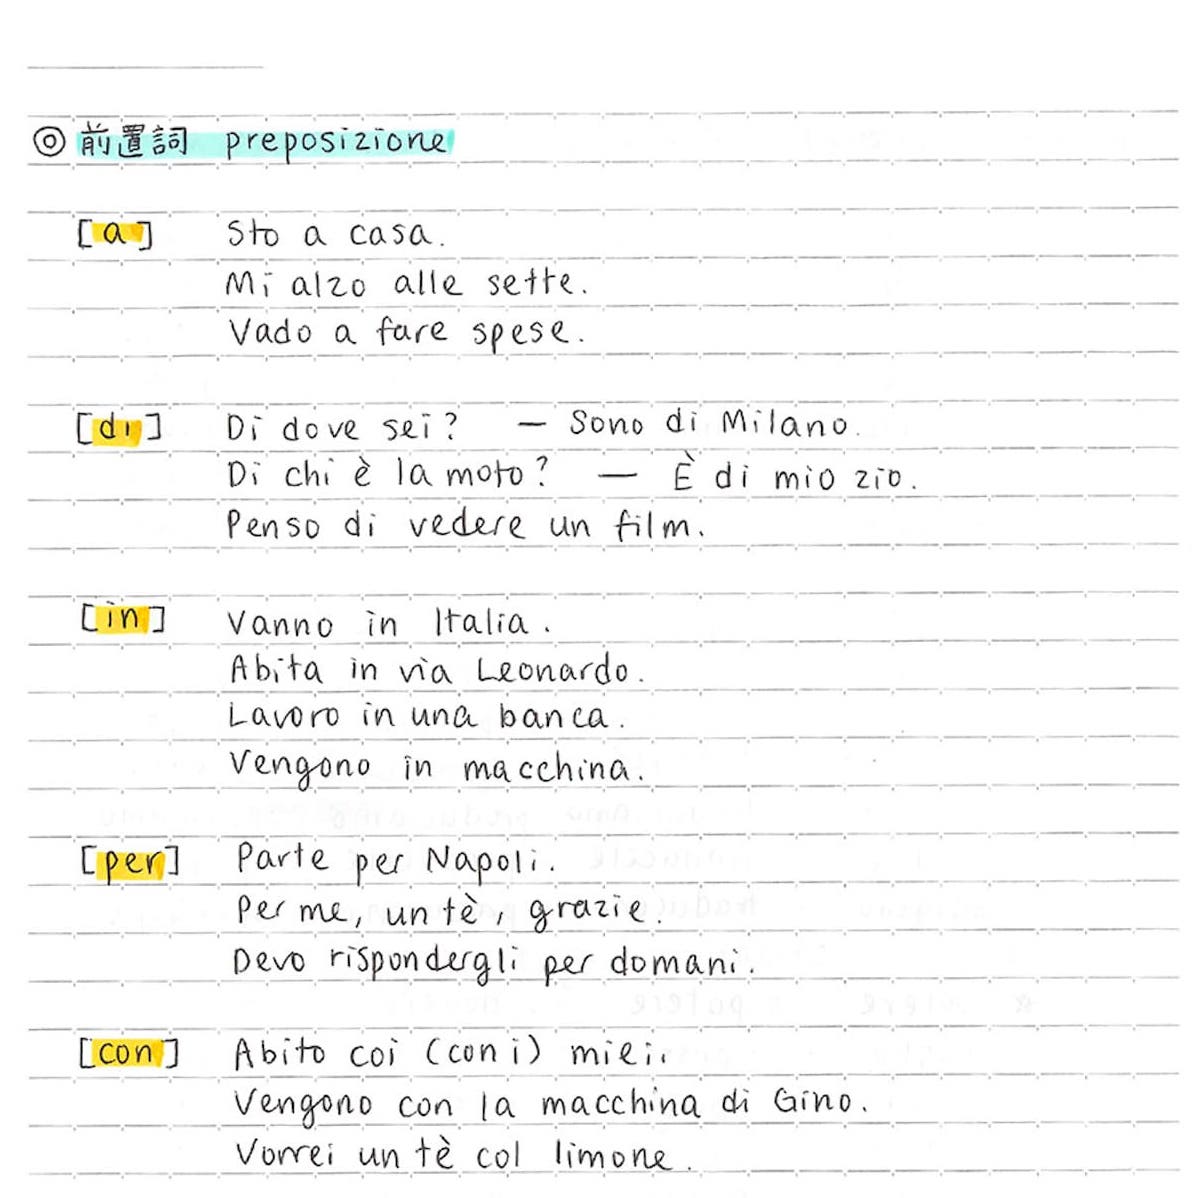 ◎ 前置詞 preposizione
[a] Sto a casa.
Mi alzo alle sette.
Vado a fare spese.
[di] Di dove sei? — Sono di Milano.
Di chi è la moto? — È di mio zio.
Penso di vedere un film.
[in] Vanno in Italia.
Abita in via Leonardo.
Lavoro in una banca.
Vengono in macchina.
[per] Parte per Napoli.
Per me, un tè, grazie.
Devo rispondergli per domani.
[con] Abito coi (con i) miei.
Vengono con la macchina di Gino.
Vorrei un tè col limone.